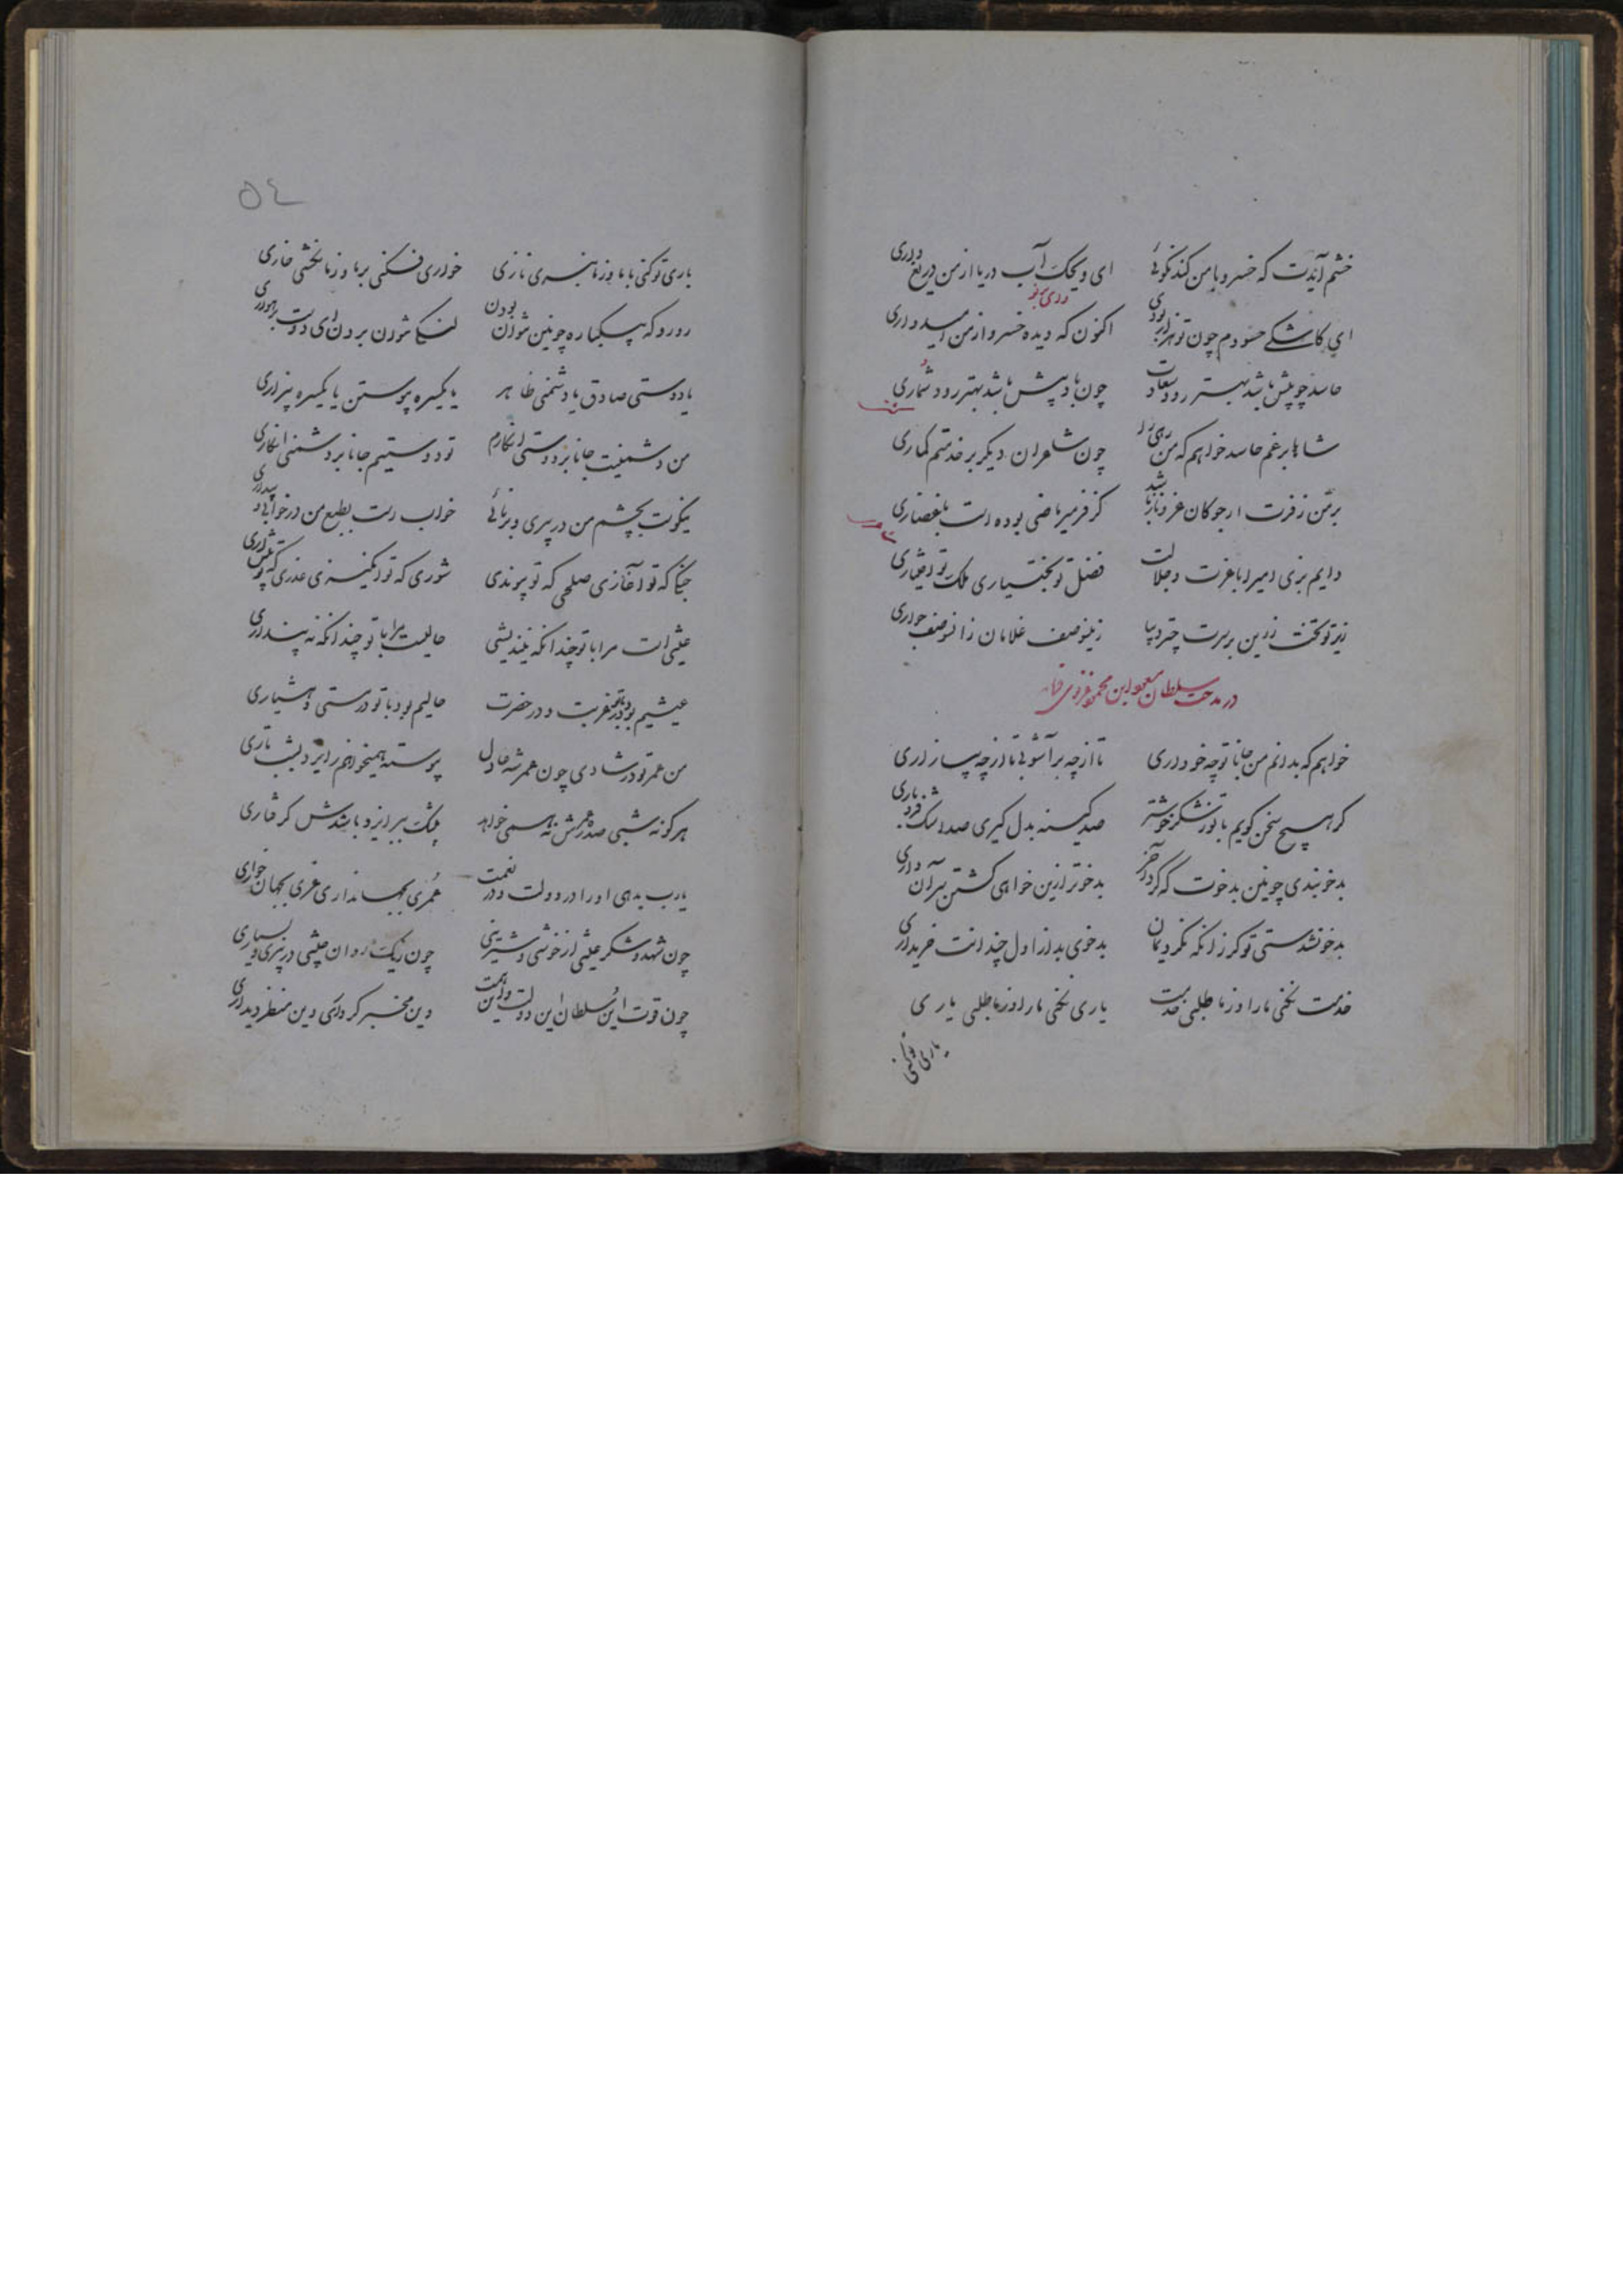 خشم آیدت که خسرو با من کند نکوئی ای ویحک آب دریا از من دریغ داری
ای کاشکی حسودم چون تو هزار بودی اکنون که دیده خسرو از من امیدواری
حاسد چو پیش باشد بهتر رود سعادت چون باد پیش باشد بهتر رود شماری
شاها برغم حاسد خواهم که من رهی را چون شاعران دیگر بر خدمتم گماری
بر من ز فرت ارجو کان عز و ناز باشد کز فر میر ماضی بوده است با غضاری
دایم بزی امیرا با عزت و جلالت فضل تو بختیاری ملک تو اختیاری
زیر تو تخت زرین بر سرت چتر دیبا زینو صف غلامان زانو صف جواری
در مدحت سلطان مسعود ابن محمود غزنوی
خواهم که بدانم من جانا تو چه خو داری تا از چه بر آشوبی تا از چه بیازاری
گر هیچ سخن گویم با تو ز شکر خوشتر صد کینه بدل گیری صد اشک فرو باری
بدخو نبدی چونین بدخوت که کرد آخر بدخوتر ازین خواهی گشتن سر آن داری
بدخو نشدستی تو گر زانکه نکردیمان بدخوی بد از اول چندانت خریداری
خدمت نکنی ما را وز ما طلبی خدمت یاری نکنی ما را وز ما طلبی یاری
یاری تو کنی
٥٤
یاری تو کنی با ما وز ما نبری نازی خواری فکنی بر ما وز ما نکشی خاری
رو رو که بیکباره چونین نتوان بودن لنگی نتوان بردن ای دوست برهواری
یا دوستی صادق یا دشمنی ظاهر یا یکسره پیوستن یا یکسره بیزاری
من دشمنیت جانا بر دوستی انگارم تو دوستیم جانا بر دشمنی انگاری
نیکوست بچشم من در پیری و برنائی خوب است بطبع من در خوابی و بیداری
جنگی که تو آغازی صلحی که تو پیوندی شوری که تو انگیزی عذری که تو پیش آری
عیشی است مرا با تو چندانکه نیندیشی حالیست مرا با تو چندانکه نپنداری
عیشیم بود با تو در غربت و در حضرت حالیم بود با تو در مستی و هشیاری
من عمر تو در شادی چون عمر شه عادل پیوسته همیخواهم ز ایزد بشب تاری
هر گونه شبی صد ره عمرش نه همی خواهد بیشک ببر ایزد باشدش گرفتاری
یارب بدهی او را در دولت و در نعمت عمری بجهانداری عزی بجهانخواری
چون شهد و شکر عیشی از خوشی و شیرینی چون ریگ روان جیشی در پری و بسیاری
چون قوت این سلطان این دولت و این همت وین مخبر کرداری وین منظر دیداری